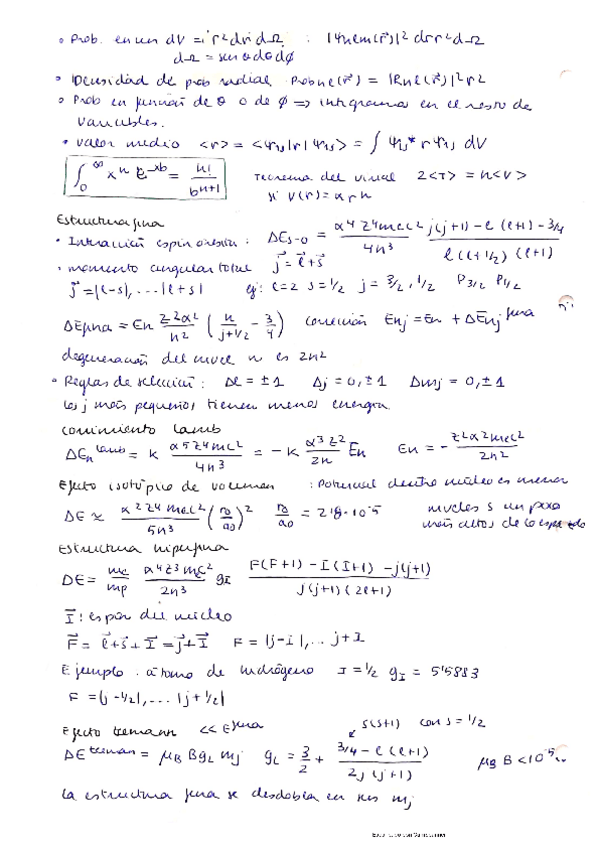 • Prob. en un dV = r²dr dΩ : |Ψnlm(r⃗)|² dr r² dΩ
dΩ = senθ dθ dϕ
• Densidad de prob radial Prob nl(r⃗) = |Rnl(r⃗)|² r²
• Prob en función de θ o de ϕ => integramos en el resto de
variables.
• valor medio <r> = <Ψ1s|r|Ψ1s> = ∫ Ψ1s* r Ψ1s dV
∫₀^∞ xⁿ e^-xb = n! / bⁿ⁺¹
Teorema del virial 2<T> = n<V>
si V(r) = αrⁿ
Estructura fina
• Interacción espín órbita: ΔEs-o = α⁴Z⁴mec² / 4n³ · j(j+1) - l(l+1) - 3/4 / l(l+1/2)(l+1)
• momento angular total j⃗ = l⃗+s⃗
j⃗ = |l-s|, ... |l+s| ej: l=2 s=1/2 j = 3/2, 1/2 P3/2 P1/2
ΔEfina = En Z²α²/n² ( n/j+1/2 - 3/4 ) corrección Enj = En + ΔEnj fina
degeneración del nivel n es 2n²
• Reglas de selección: Δl = ±1 Δj = 0, ±1 Δmj = 0, ±1
los j más pequeños tienen menos energía.
Corrimiento Lamb
ΔEn Lamb = k α⁵Z⁴mc² / 4n³ = -k α³Z² / 2n En En = - Z²α²mec² / 2n²
Efecto isotópico de volumen : Potencial dentro núcleo es menor
ΔE ≈ α²Z⁴mec² / 5n³ (r0/a0)² r0/a0 = 2'8·10⁻⁵ niveles s un poco
más altos de lo esperado
Estructura hiperfina
ΔE = me/mp α⁴Z³mec² / 2n³ gI F(F+1) - I(I+1) - j(j+1) / j(j+1)(2l+1)
I⃗: espín del núcleo
F⃗ = l⃗+s⃗+I⃗ = j⃗+I⃗ F = |j-i|, ... j+I
Ejemplo átomo de hidrógeno I = 1/2 gI = 5'5883
F = |j-1/2|, ... |j+1/2|
Efecto Zeeman << Efina s(s+1) con s = 1/2
ΔE Zeeman = μB B gL mj gL = 3/2 + 3/4 - l(l+1) / 2j(j+1) μB B < 10⁻⁵
La estructura fina se desdobla en sus mj